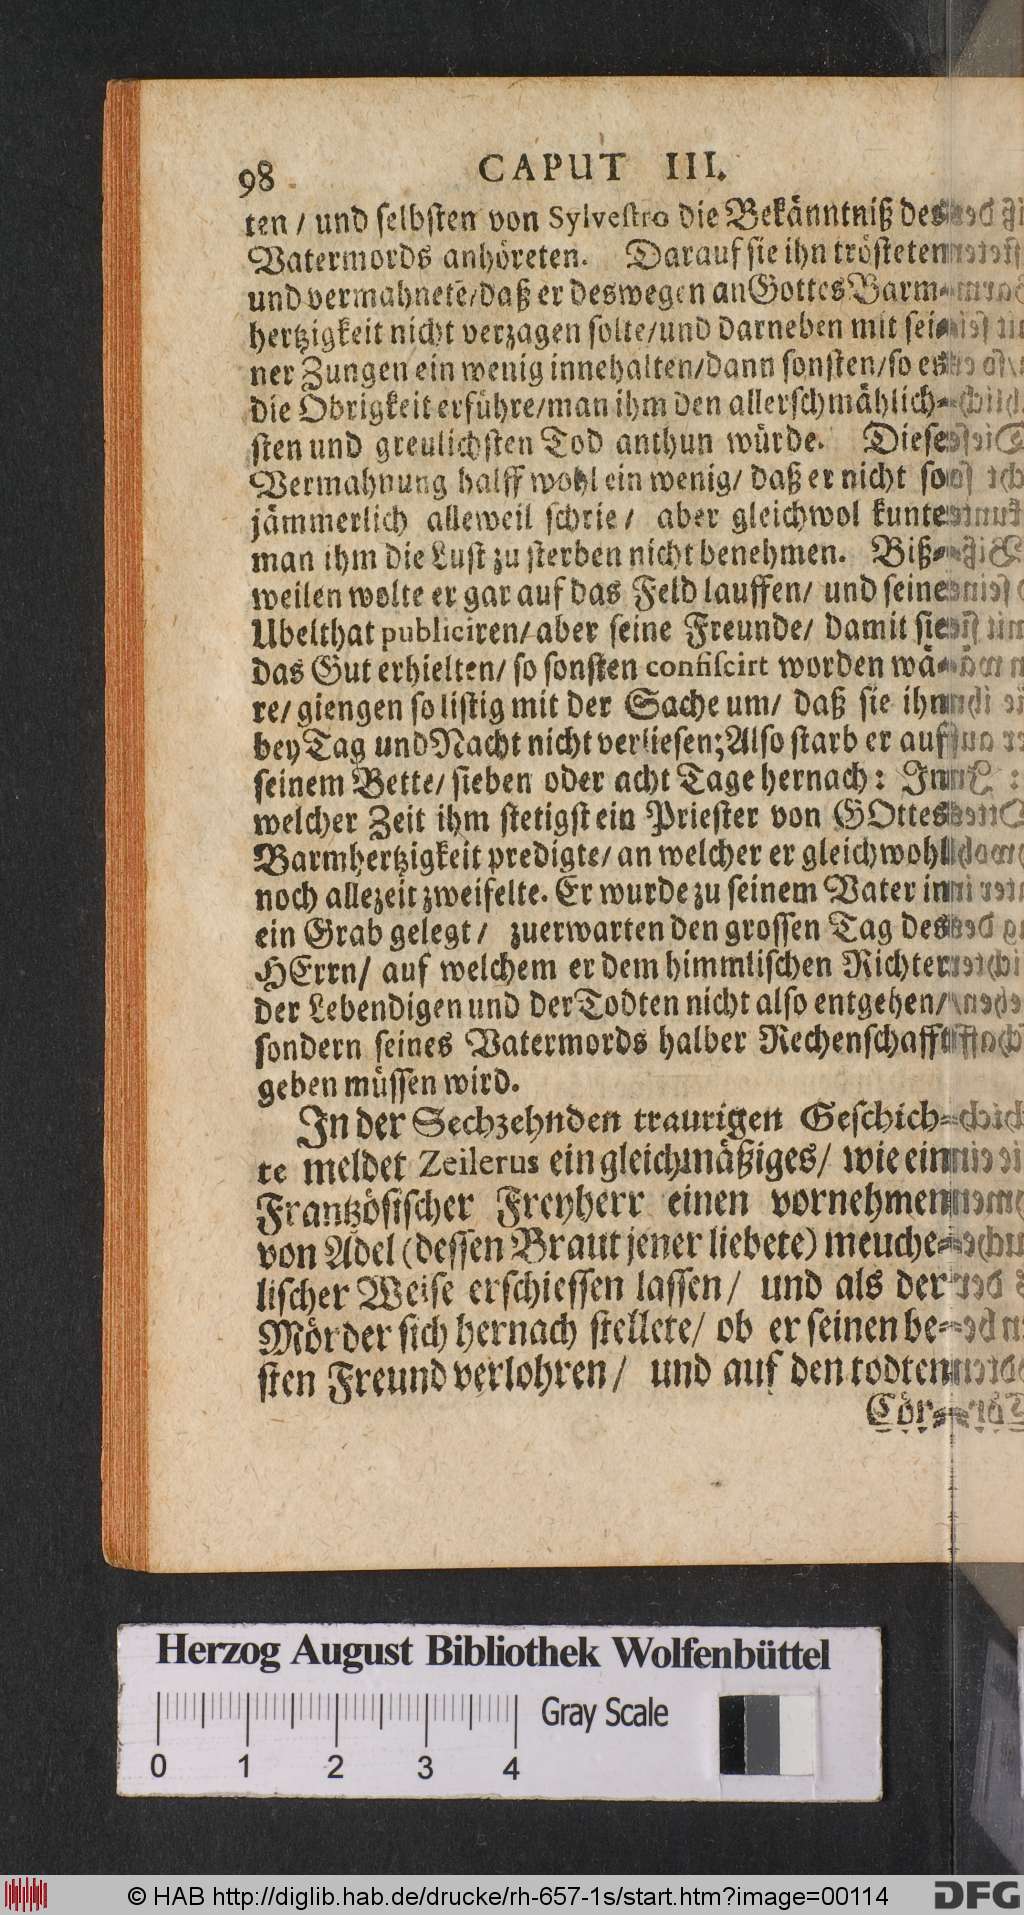 98 CAPUT III.
ten / und selbsten von Sylvestro die Bekänntniß des
Vatermords anhöreten. Darauf sie ihn trösteten
und vermahnete/daß er deswegen an Gottes Barm-
hertzigkeit nicht verzagen solte/und darneben mit sei-
ner Zungen ein wenig innehalten/dann sonsten/so es
die Obrigkeit erführe/man ihm den allerschmählich-
sten und greulichsten Tod anthun würde. Diese
Vermahnung halff wohl ein wenig/ daß er nicht so
jämmerlich alleweil schrie/ aber gleichwol kunte
man ihm die Lust zu sterben nicht benehmen. Biß-
weilen wolte er gar auf das Feld lauffen/ und seine
Ubelthat publiciren/aber seine Freunde/ damit sie
das Gut erhielten/ so sonsten confiscirt worden wä-
re/ giengen so listig mit der Sache um/ daß sie ihn
bey Tag und Nacht nicht verliesen; Also starb er auf
seinem Bette/ sieben oder acht Tage hernach: In
welcher Zeit ihm stetigst ein Priester von GOttes
Barmhertzigkeit predigte/ an welcher er gleichwohl
noch allezeit zweifelte. Er wurde zu seinem Vater in
ein Grab gelegt/ zuerwarten den grossen Tag des
HErrn/ auf welchem er dem himmlischen Richter
der Lebendigen und der Todten nicht also entgehen/
sondern seines Vatermords halber Rechenschafft
geben müssen wird.
In der Sechzehnden traurigen Geschich-
te meldet Zeilerus ein gleichmäßiges/ wie ein
Frantzösischer Freyherr einen vornehmen
von Adel (dessen Braut jener liebete) meuche-
lischer Weise erschiessen lassen/ und als der
Mörder sich hernach stellete/ ob er seinen be-
sten Freund verlohren/ und auf den todten
Cör-
Herzog August Bibliothek Wolfenbüttel
0 1 2 3 4 Gray Scale
© HAB http://diglib.hab.de/drucke/rh-657-1s/start.htm?image=00114 DFG